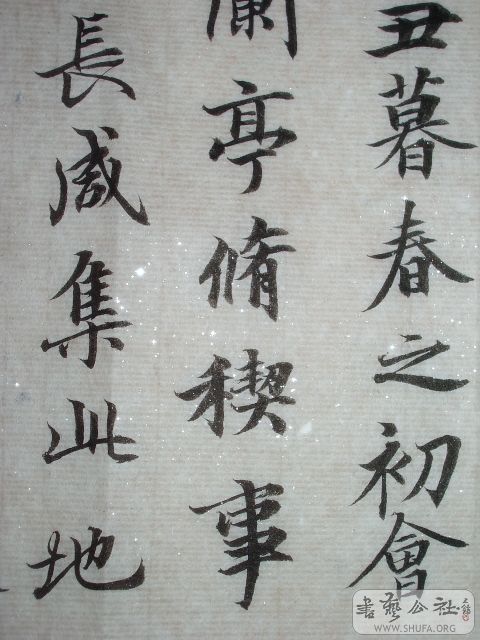 丑暮春之初會
蘭亭脩稧事
長咸集此地
書藝公社
WWW.SHUFA.ORG